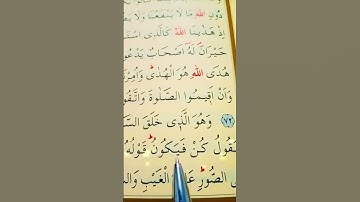 دُونِ اللّٰهِ مَا لَا يَنْفَعُنَا وَلَا يَضُ
اِذْ هَدٰينَا اللّٰهُ كَالَّذِى اسْتَ
حَيْرَانَ لَهُٓ اَصْحَابٌ يَدْعُو
هُدَى اللّٰهِ هُوَ الْهُدٰى وَاُمِرْ
وَاَنْ اَقِيمُوا الصَّلٰوةَ وَاتَّقُو
﴿٧٢﴾ وَهُوَ الَّذِى خَلَقَ السَّ
يَقُولُ كُنْ فَيَكُونُ قَوْلُهُ
الصُّورِ عَا الْغَيْبِ وَال